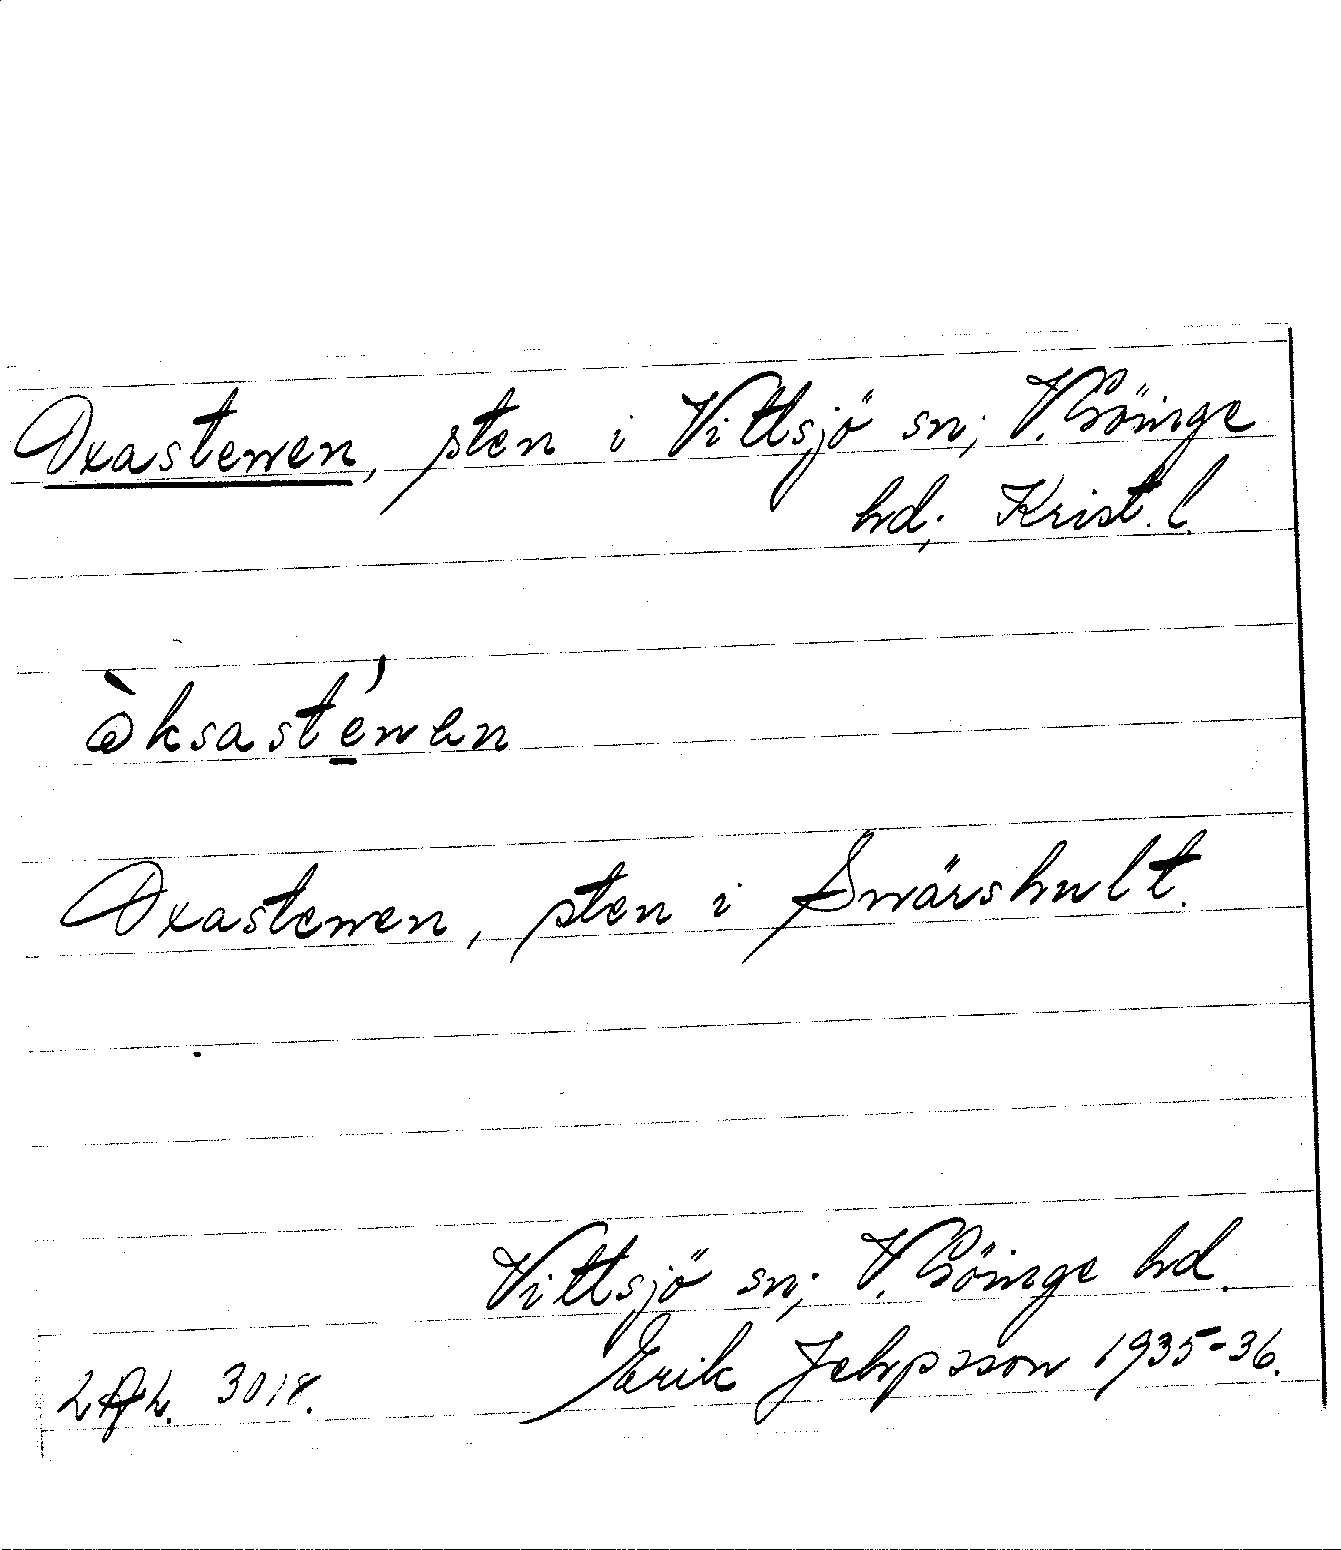 Oxastenen, sten i Vittsjö sn; V. Göinge
hd; Krist. l.
òksasténen
Oxastenen, sten i Snärshult.
Vittsjö sn; V. Göinge hd.
Erik Jehpsson 1935-36.
3018.